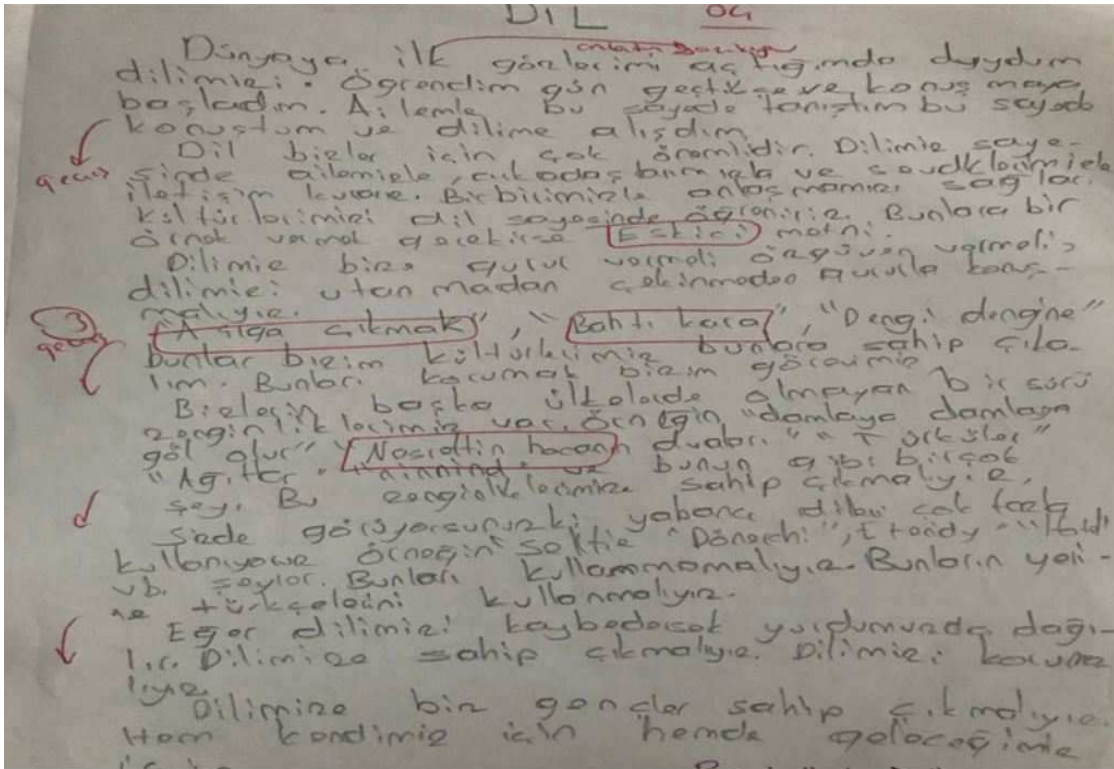 DİL 04
anlatım bozukluğu
Dünyaya ilk gözlerimi açtığımda duydum
dilimizi. Öğrendim gün geçtikçe ve konuşmaya
başladım. Ailemle bu sayede tanıştım bu sayede
konuştum ve dilime alışdım.
Dil bizler için çok önemlidir. Dilimiz saye-
geçiş sinde ailemizle, arkadaşlarımızla ve sevdiklerimizle
iletişim kurarız. Birbirimizle anlaşmamızı sağlar.
Kültürlerimizi dil sayesinde öğreniriz. Bunlara bir
örnek vermek gerekirse Eskici metni.
Dilimiz bize gurur vermeli özgüven vermeli,
dilimizi utanmadan çekinmeden gururla konuş-
malıyız.
3 geçiş "Asılga çıkmak", "Bahtı kara", "Dengi dengine"
bunlar bizim kültürlerimiz bunlara sahip çıka-
lım. Bunları korumak bizim görevimiz
Bizlerin başka ülkelerde olmayan bir sürü
zenginliklerimiz var. Örneğin "damlaya damlaya
göl olur" "Nasrettin hocanın" "Türküler"
"Ağıtlar" ve bunun gibi birçok
şey. Bu zenginliklerimize sahip çıkmalıyız,
Sizde görüyorsunuzki yabancı çok fazla
kullanıyoruz örneğin "Dönerchi", "trendy"
vb. şeyler. Bunları kullanmamalıyız. Bunların yeri-
ne türkçelerini kullanmalıyız.
Eğer dilimizi kaybedersek yurdumuzda dağı-
lır. Dilimize sahip çıkmalıyız. Dilimizi koruma
lıyız
Dilimize biz gençler sahip çıkmalıyız.
Hem kendimiz için hemde geleceğimiz